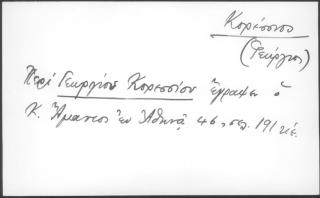 Κορέσσιος
(Γεώργιος)
Περὶ Γεωργίου Κορεσσίου ἔγραψεν ὁ
Κ. Ἄμαντος ἐν Ἀθηνᾷ 46, σελ. 191 κἑ.